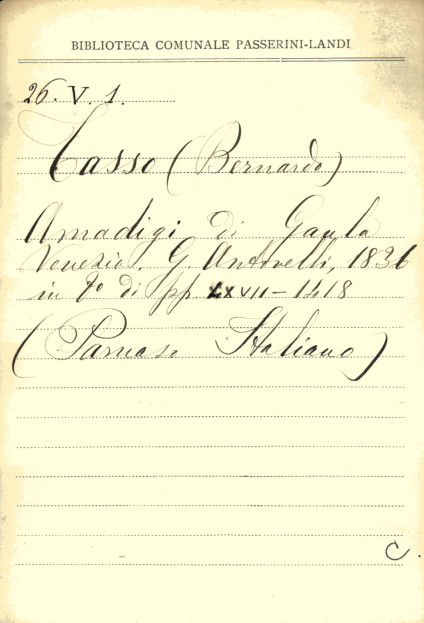 BIBLIOTECA COMUNALE PASSERINI-LANDI
26. V. 1.
Tasso (Bernardo)
Amadigi di Gaula
Venezia. G. Antonelli, 1836
in 8° di pp LXVII-1418
(Parnaso Italiano)
C.